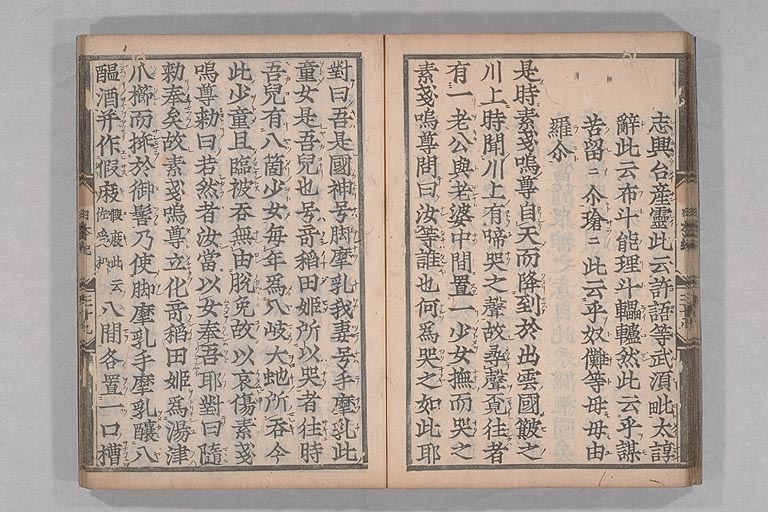 志興台産靈此云許語等武湏毗太諄
辭此云布斗能理斗轠轤然此云乎謀
苦留留尒瑲瑲此云乎奴儺等母母由
羅尒
是時素戔嗚尊自天而降到於出雲國簸之
川上時聞川上有啼哭之聲故尋聲覓往者
有一老公與老婆中間置一少女撫而哭之
素戔嗚尊問曰汝等誰也何爲哭之如此耶
對曰吾是國神号脚摩乳我妻号手摩乳此
童女是吾兒也号奇稻田姬所以哭者往時
吾兒有八箇少女每年爲八岐大虵所吞今
此少童且臨被吞無由脫免故以哀傷素戔
嗚尊勅曰若然者汝當以女奉吾耶對曰隨
勅奉矣故素戔嗚尊立化奇稻田姬爲湯津
爪櫛而揷於御髻乃使脚摩乳手摩乳釀八
醞酒幷作假庪假庪此云佐受枳八間各置一口槽